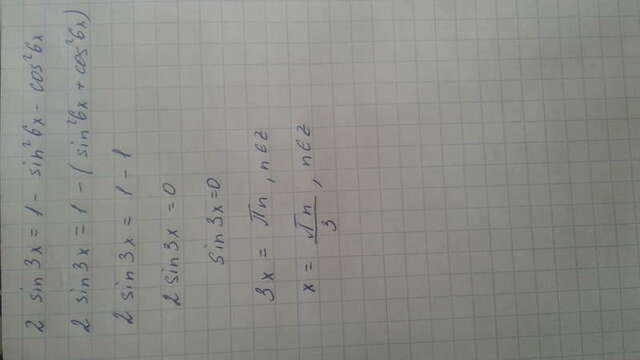 2 sin 3x = 1 - sin²6x - cos²6x
2 sin 3x = 1 - (sin²6x + cos²6x)
2 sin 3x = 1 - 1
2 sin 3x = 0
sin 3x = 0
3x = πn, n∈z
x = πn/3, n∈z